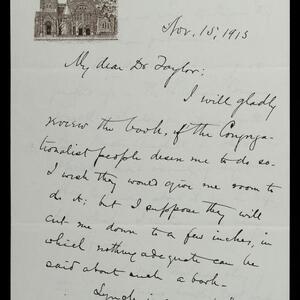 Nov. 15, 1913
My dear Dr Taylor:
I will gladly
review the book, if the Congrega-
tionalist people desire me to do so.
I wish they would give me room to
do it; but I suppose they will
cut me down to a few inches, in
which nothing adequate can be
said about such a book.
Lynch